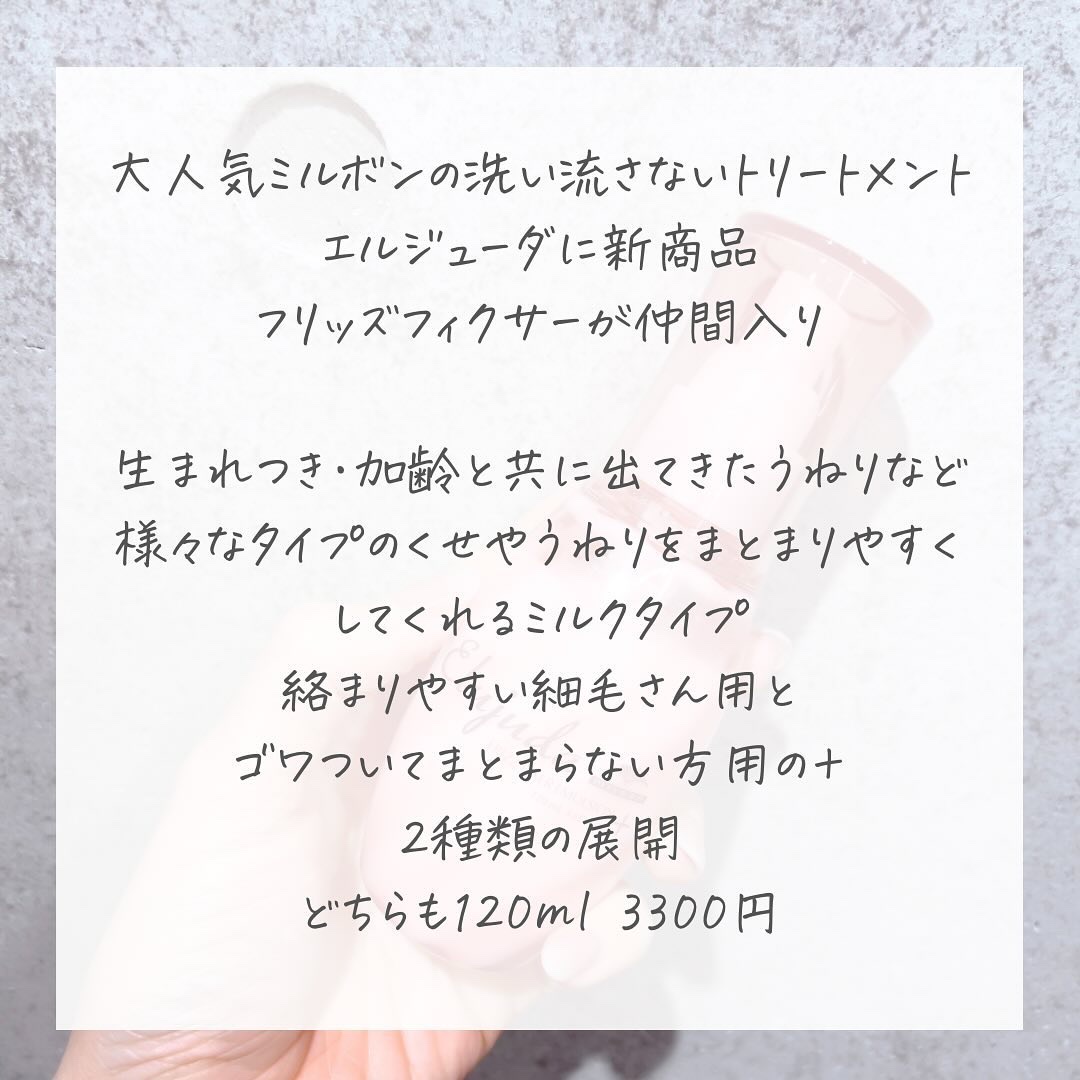 大人気ミルボンの洗い流さないトリートメント
エルジューダに新商品
フリッズフィクサーが仲間入り
生まれつき・加齢と共に出てきたうねりなど
様々なタイプのくせやうねりをまとまりやすく
してくれるミルクタイプ
絡まりやすい細毛さん用と
ゴワついてまとまらない方用の+
2種類の展開
どちらも120ml 3300円